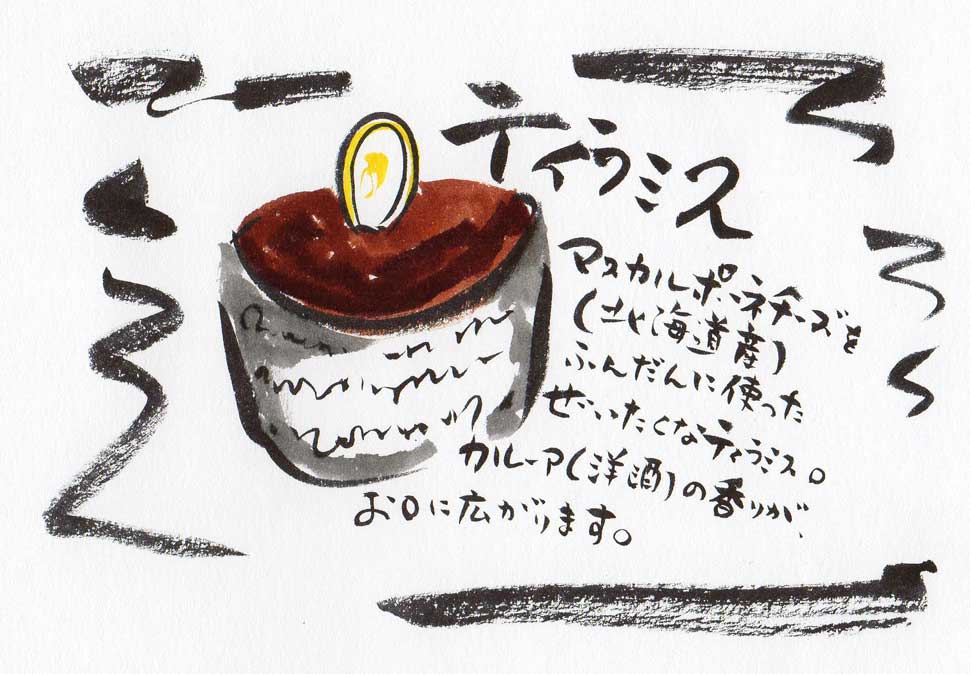 ティラミス
マスカルポーネチーズを
(北海道産)
ふんだんに使った
ぜいたくなティラミス。
カルーア(洋酒)の香りが、
お口に広がります。